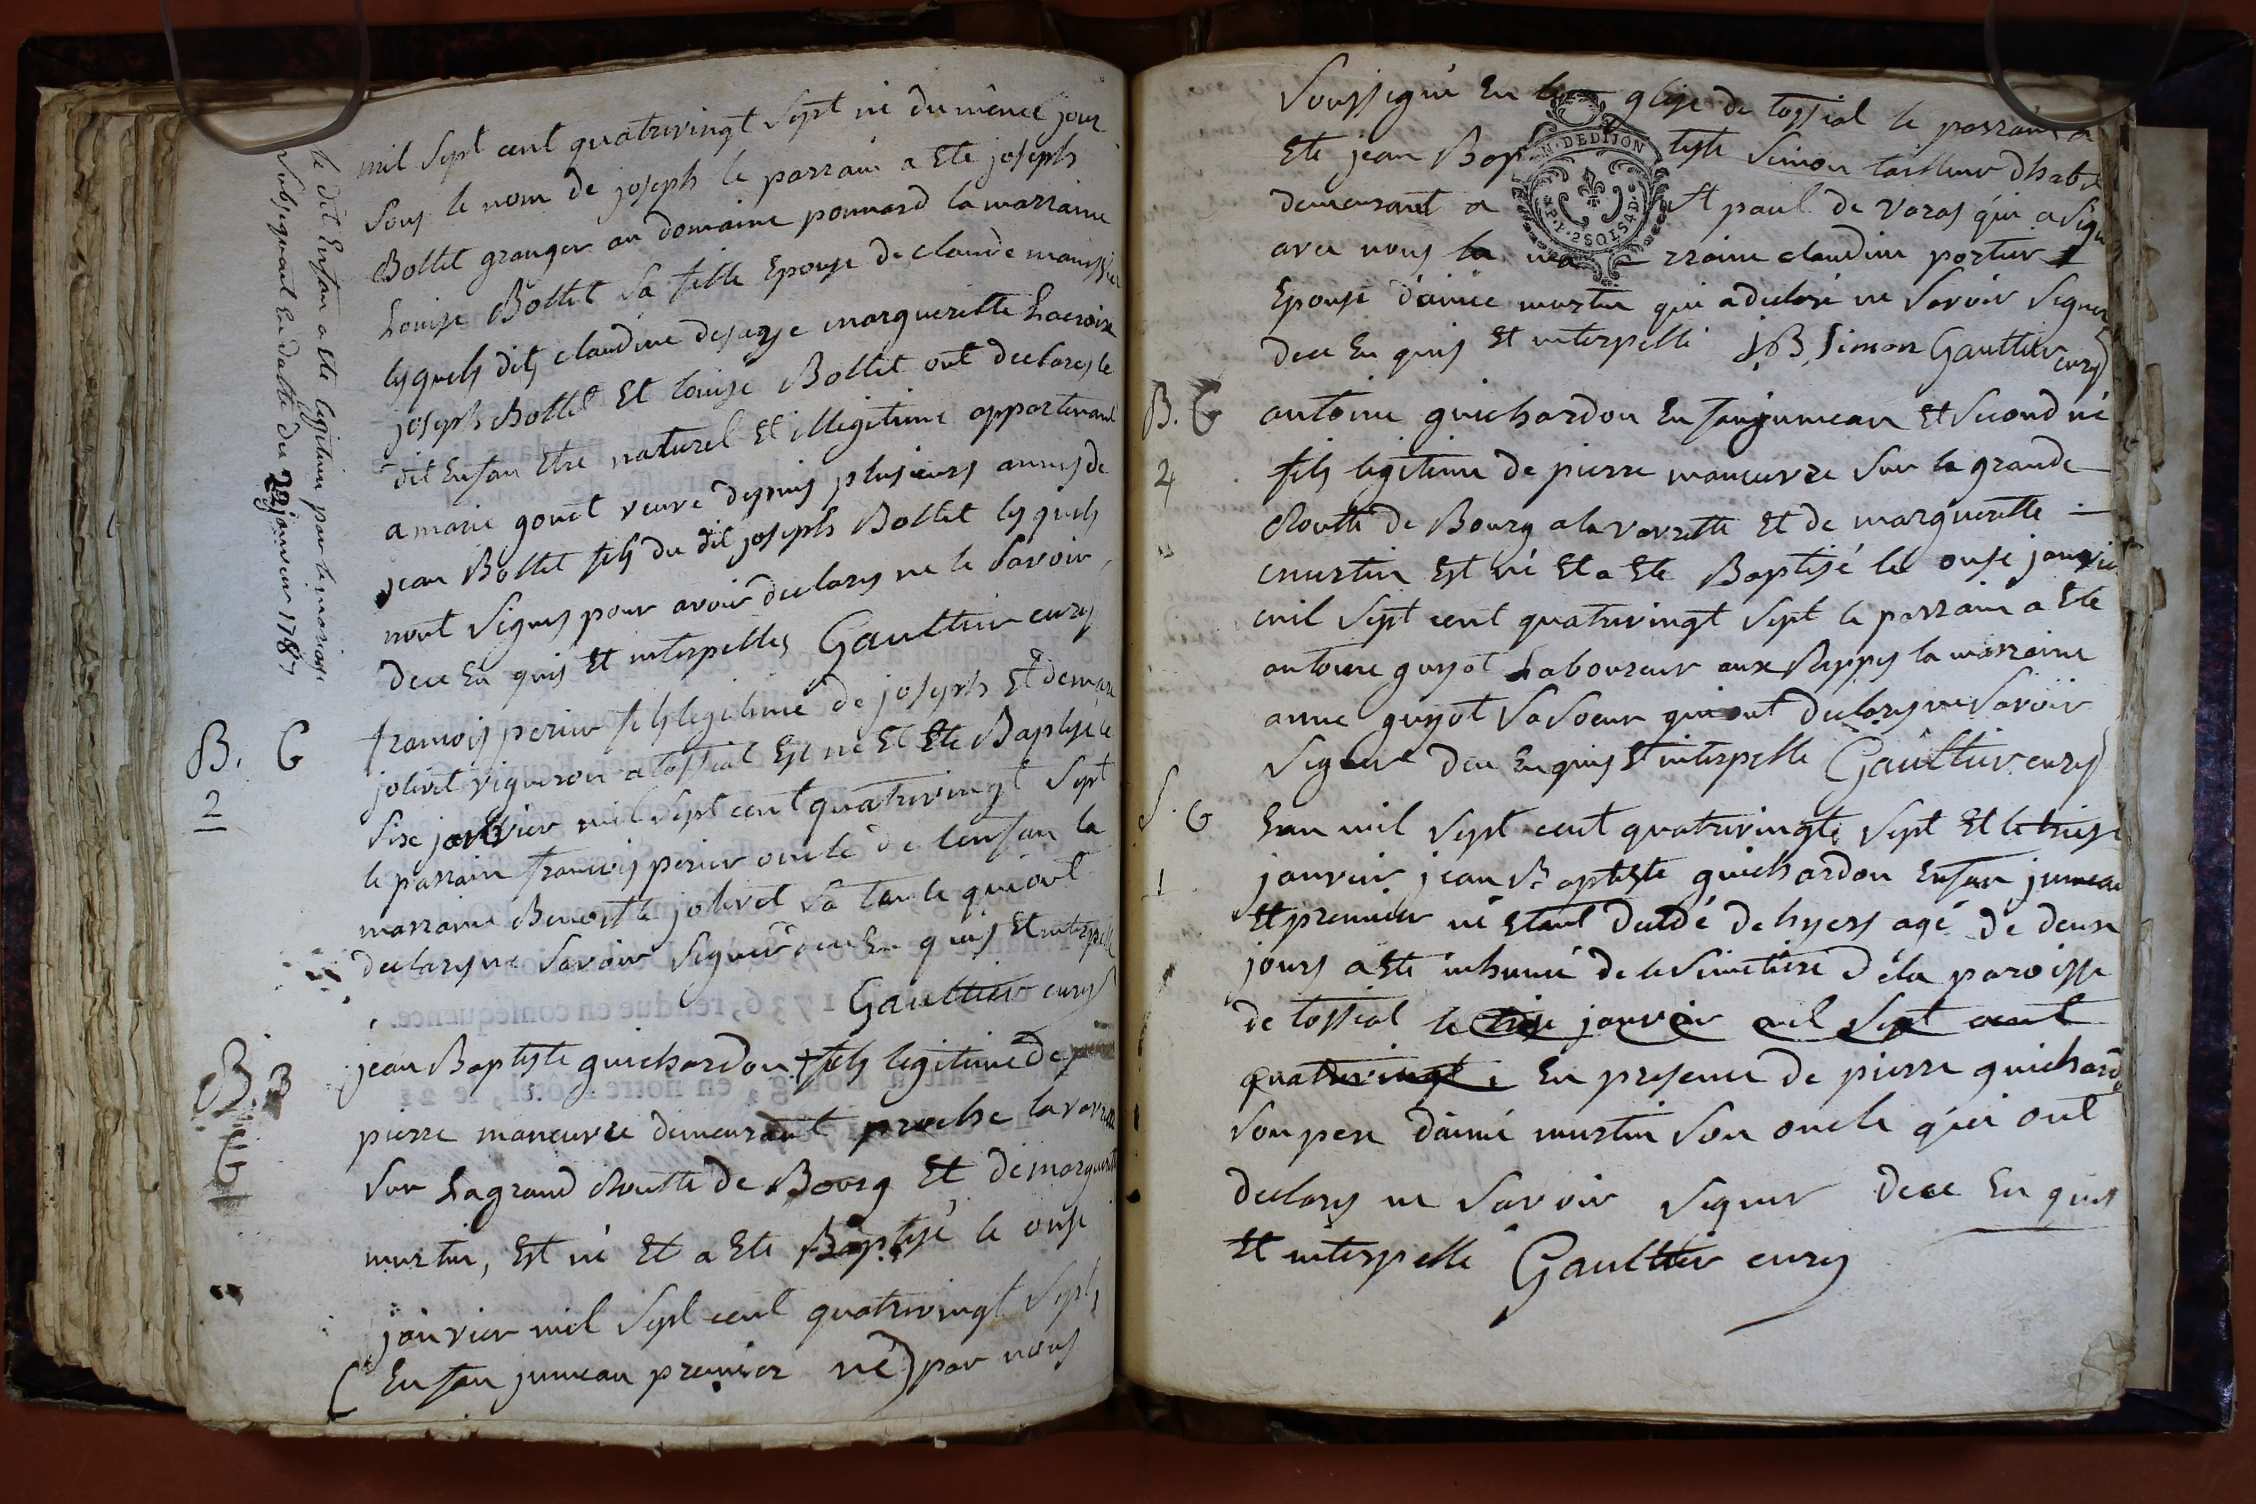 le dit Enfan a ete legitimé par le mariage
subsequant En datte du 22 janvier 1787
mil sept cent quatrevingt sept né du même jour
sous le nom de joseph le parrain a ete joseph
Bollet granger au domaine ponnard la marraine
Louise Bollet sa fille Epouse de claude
lesquels dits claudine desarge marguerite Lacroix
joseph Bollet Et louise Bollet ont declarés le
dit Enfan etre naturel et illegitime appartenant
a marie gouet veuve depuis plusieurs annes de
jean Bollet fils du dit joseph Bollet lesquels
nont signes pour avoir declares ne le savoir
dece En quis et interpelles Gaulthier curé
B. G
2
francois perier fils legitime de joseph Et de marie
jolivet vigneron a tossiat Est né Et Ete Baptisé le
six janvier mil sept cent quatrevingt sept
le parrain francois perier oncle de lenfan la
marraine Benoitte jolivet sa tante qui ont
declares ne savoir signer dece En quis Et interpelle
Gaulthier curé
B. 3
G
jean Baptiste guichardon + fils legitime de
pierre maneuvre demeurant proche la vavrette
sur Lagrand Routte de Bourg Et de marguerite
murtin, Est né Et a Ete Baptisé le onse
janvier mil sept cent quatrevingt sept
(Enfan jumeau premier né) par nous
soussigné En leglise de tossiat le parrain a
Ete jean Baptiste Simon tailleur dhabit
demeurant a St paul de varas qui a signé
avec nous la marraine claudine portier
Epouse daimé murtin qui a declaré ne savoir signer
dece En quis Et interpelle J B Simon Gaulthier curé
GEN. DE DIJON
M.P.P. 2 SOLS 4 D.
B. G
4
antoine guichardon Enfan jumeau Et second né
fils legitime de pierre maneuvre sur la grande
Routte de Bourg a la vavrette Et de marguerette
murtin Est né Et a Ete Baptisé le onse janvier
mil sept cent quatrevingt sept le parrain a Ete
antoine guyot Laboureur aux Rippes la marraine
anne guyot sa soeur qui ont declares ne savoir
signer dece En quis Et interpelle Gaulthier curé
S. G
1
Lan mil sept cent quatrevingt sept Et le treise
janvier jean Baptiste guichardon Enfan jumeau
Et premier né Etant decedé de hyers agé de deux
jours a Ete inhumé de le simetiere de la paroisse
de tossiat le treise janvier mil sept cent
quatrevingt En presence de pierre guichardon
son pere daimé murtin son oncle qui ont
declares ne savoir signer dece En quis
Et interpelle Gaulthier curé